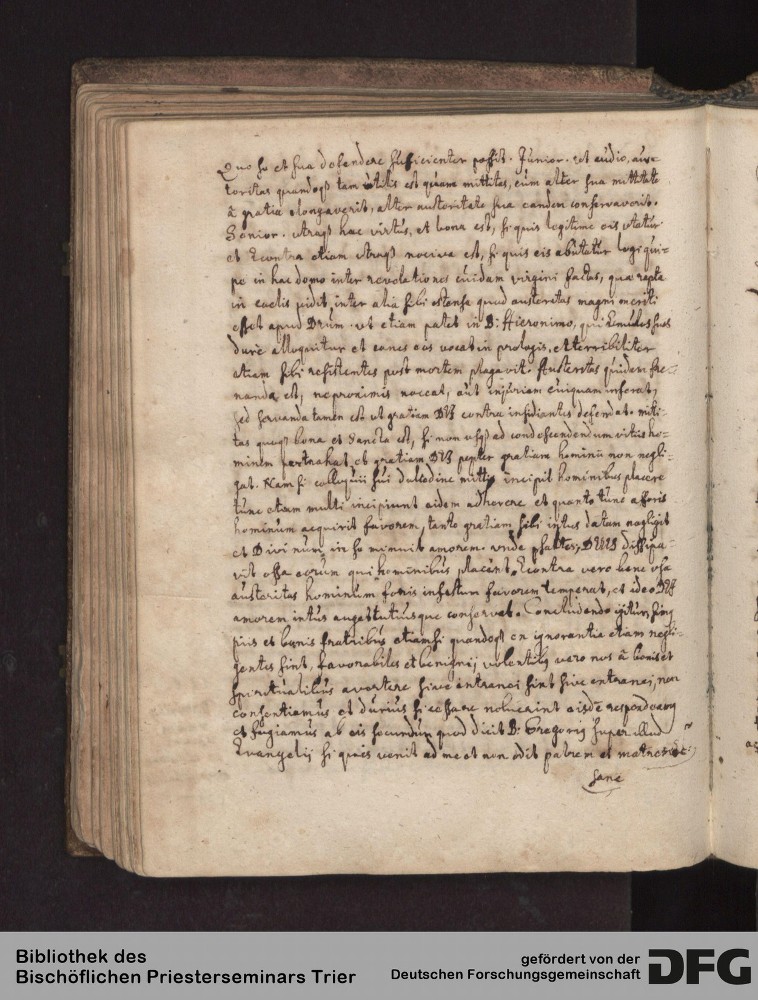 Quo se et sua defendere sufficienter possit. Junior. ut audio, aus=
teritas quandoq₃ tam utilis est quam mititas, cum alter sua mititate
â gratia elongaverit, alter austeritate sua eandem conservaverit.
Senior. utraq₃ haec virtus, et bona est, si quis legitime eis utatur
et econtra etiam utraq₃ nociva est, si quis eis abutatur legi qui=
pe in hac domo inter revelationes cuidam virgini factas, quae rapta
in coelis vidit, inter alia sibi ostensa quod austeritas magni meriti
esset apud Deum. ut etiam patet in D: Hieronimo, qui Emulos suos
dure alloquitur et canes eos vocat in prologis, et terribiliter
etiam sibi resistentes post mortem plagavit. Austeritas quidem fre=
nanda est, ne proximis noceat, aut injuriam cuiquam inferat,
sed servanda tamen est ut gratiam DEI contra insidiantes defendat. miti=
tas quoq₃ bona et sancta est, si non usq₃ ad condescendendum vitiis ho=
minem pertrahat, et gratiam DEI propter gratiam hominũ non negli=
gat. Nam si colloquii sui dulcedine mitis incipit hominibus placere
tunc etiam multi incipiunt eidem adhaerere et quanto tunc a foris
hominum acquirit favorem, tanto gratiam sibi intus datam negligit
et Divinum in se minuit amorem. unde psalter, DEUS dissipa=
vit ossa eorum qui hominibus placent. Econtra vero bene usa
austeritas hominum foris infestum favorem temperat, et ideo DEI
amorem intus augetatiusque conservat. Concludendo igitur, simus
piis et bonis fratribus etiamsi quandoq₃ ex ignorantia etiam negli=
gentes sint, favorabiles et benigni, volentib₉ vero nos â bonis et
spiritualibus avertere sive extranei sint sive entranei, non
consentiamus et durius si cessare noluerint eisdẽ respondeamus
et fugiamus ab eis secundum quod dicit D: Gregorius super illud
Evangelij si quis venit ad me et non odit patrem et matrem etc:
sane
Bibliothek des
Bischöflichen Priesterseminars Trier
gefördert von der
Deutschen Forschungsgemeinschaft
DFG